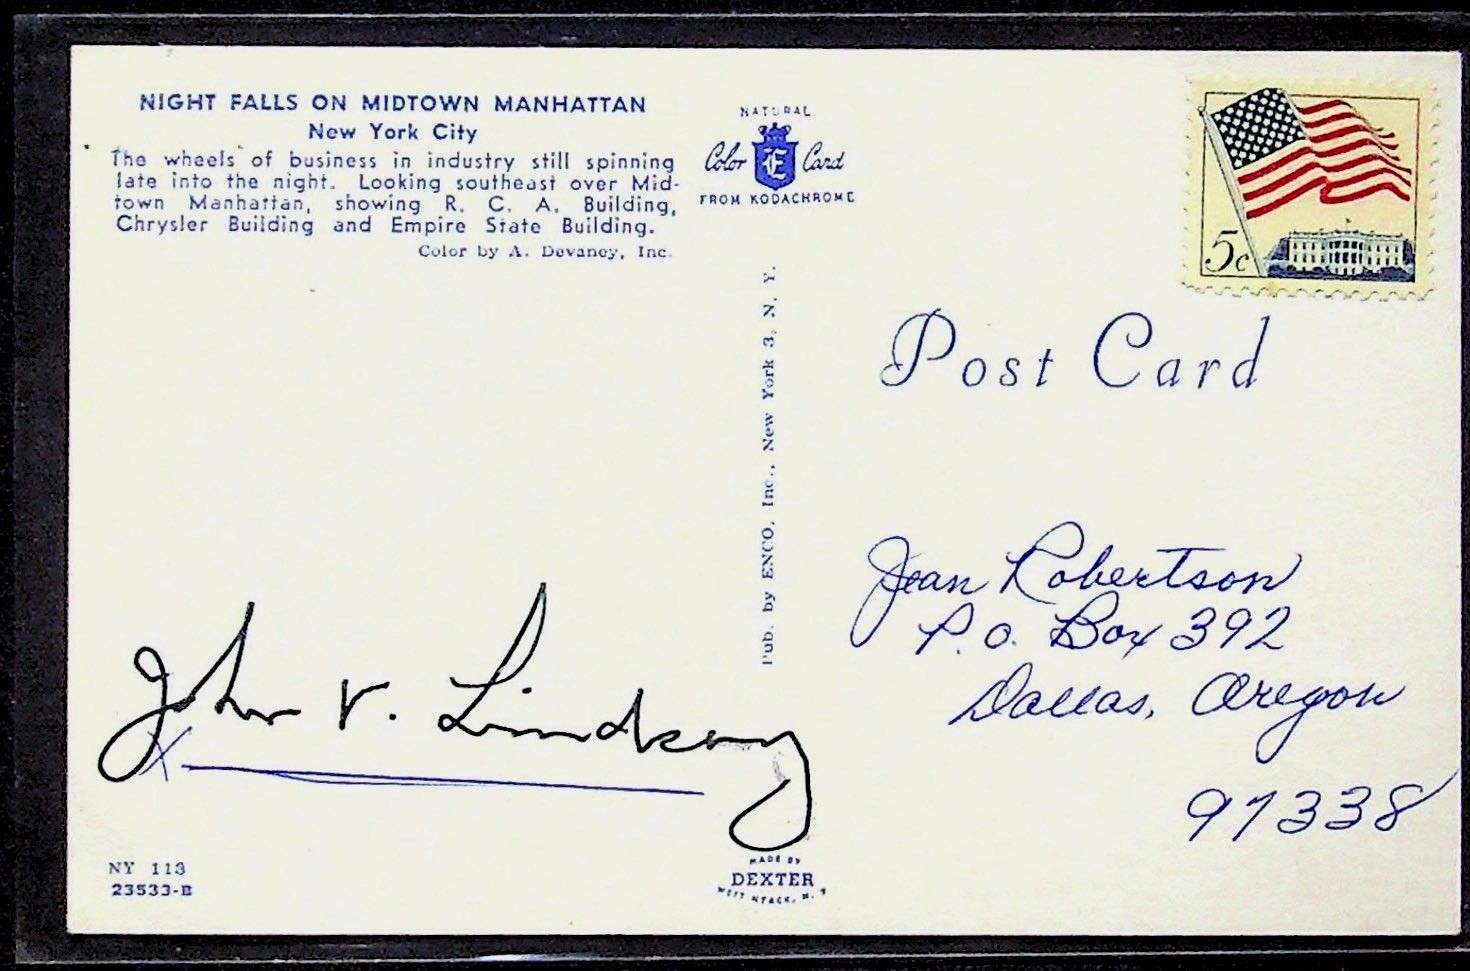 NIGHT FALLS ON MIDTOWN MANHATTAN
New York City
The wheels of business in industry still spinning
late into the night. Looking southeast over Mid-
town Manhattan, showing R. C. A. Building,
Chrysler Building and Empire State Building.
Color by A. Devaney, Inc.
NATURAL
Color E Card
FROM KODACHROME
5c
Pub. by ENCO, Inc., New York 3, N. Y.
Post Card
Jean Robertson
P.O. Box 392
Dallas, Oregon
97338
John V. Lindsay
X
NY 113
23533-B
MADE BY
DEXTER
WEST NYACK, N. Y.